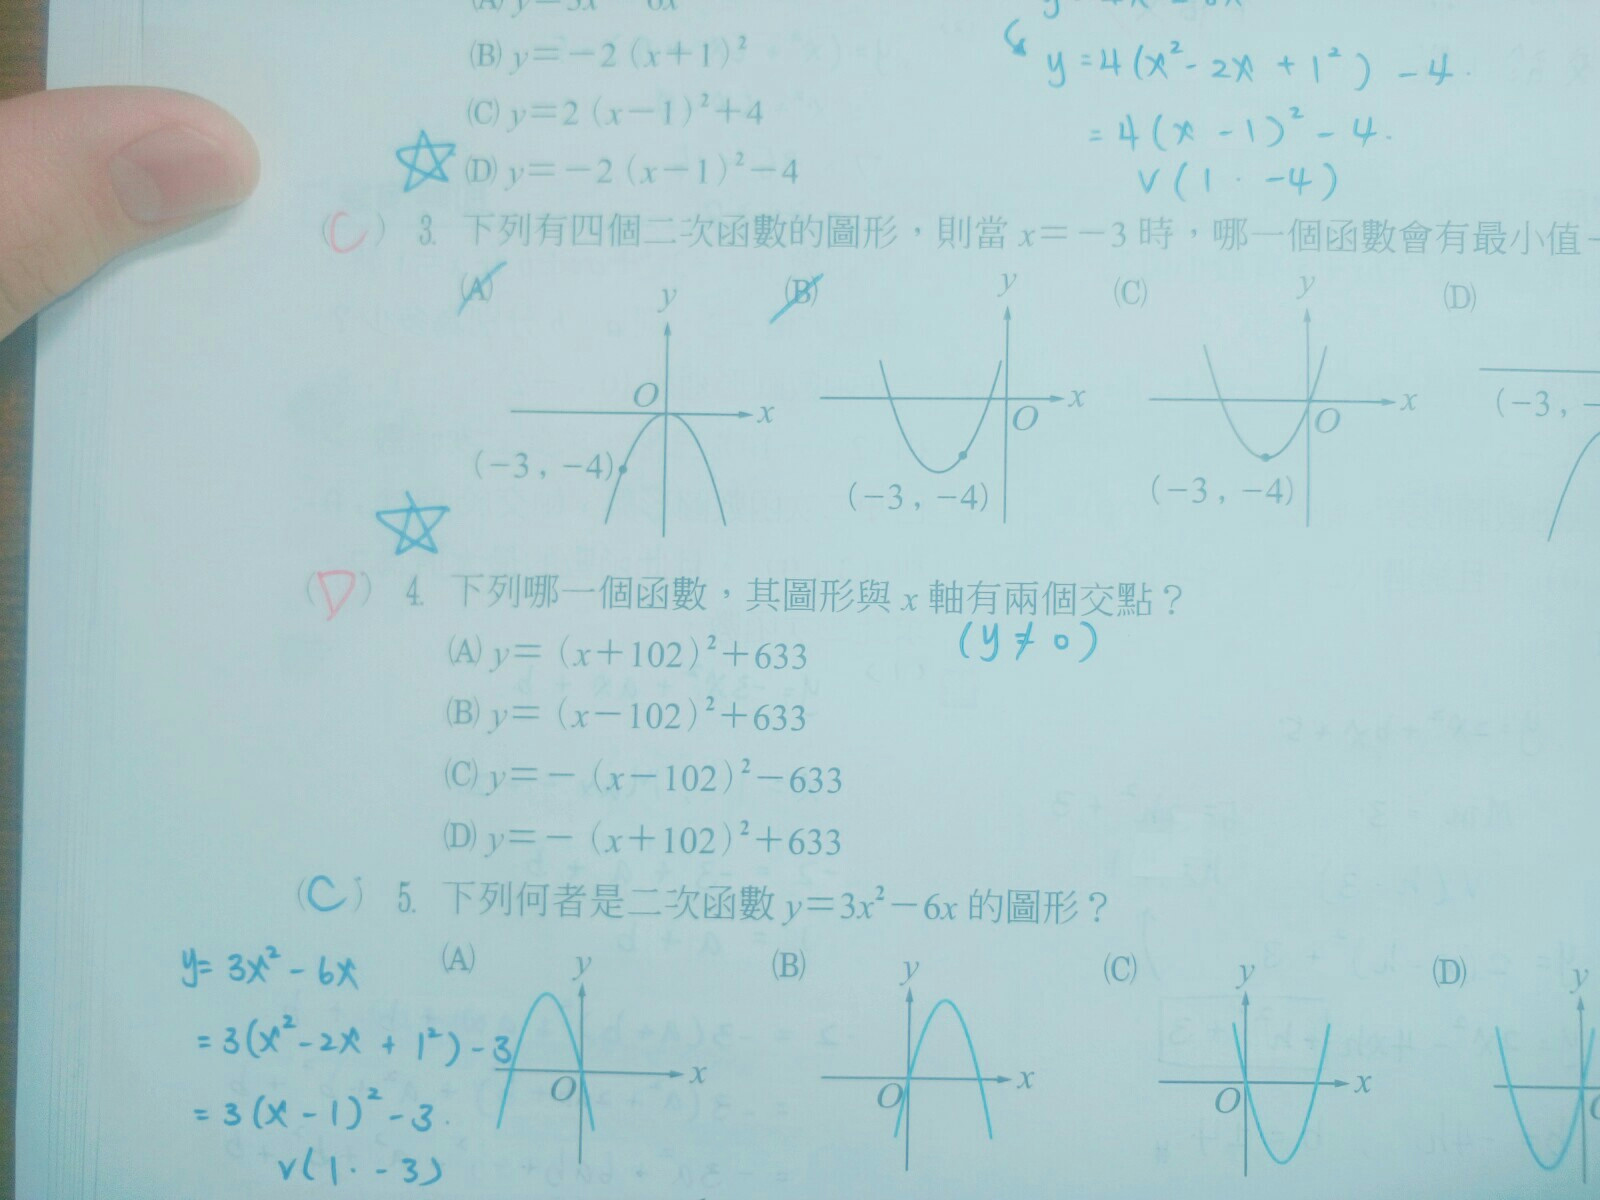 (B) y=-2(x+1)²
(C) y=2(x-1)²+4
(D) y=-2(x-1)²-4
y=4(x²-2x+1²)-4.
=4(x-1)²-4.
V(1.-4)
(C) 3. 下列有四個二次函數的圖形，則當 x=-3 時，哪一個函數會有最小值-
(A) (B) (C) (D)
y y y
O x O x O x
(-3, -4) (-3, -4) (-3, -4) (-3, -
(D) 4. 下列哪一個函數，其圖形與 x 軸有兩個交點？
(y≠0)
(A) y=(x+102)²+633
(B) y=(x-102)²+633
(C) y=-(x-102)²-633
(D) y=-(x+102)²+633
(C) 5. 下列何者是二次函數 y=3x²-6x 的圖形？
y=3x²-6x
=3(x²-2x+1²)-3
=3(x-1)²-3.
V(1.-3)
(A) (B) (C) (D)
y y y y
O x O x O x